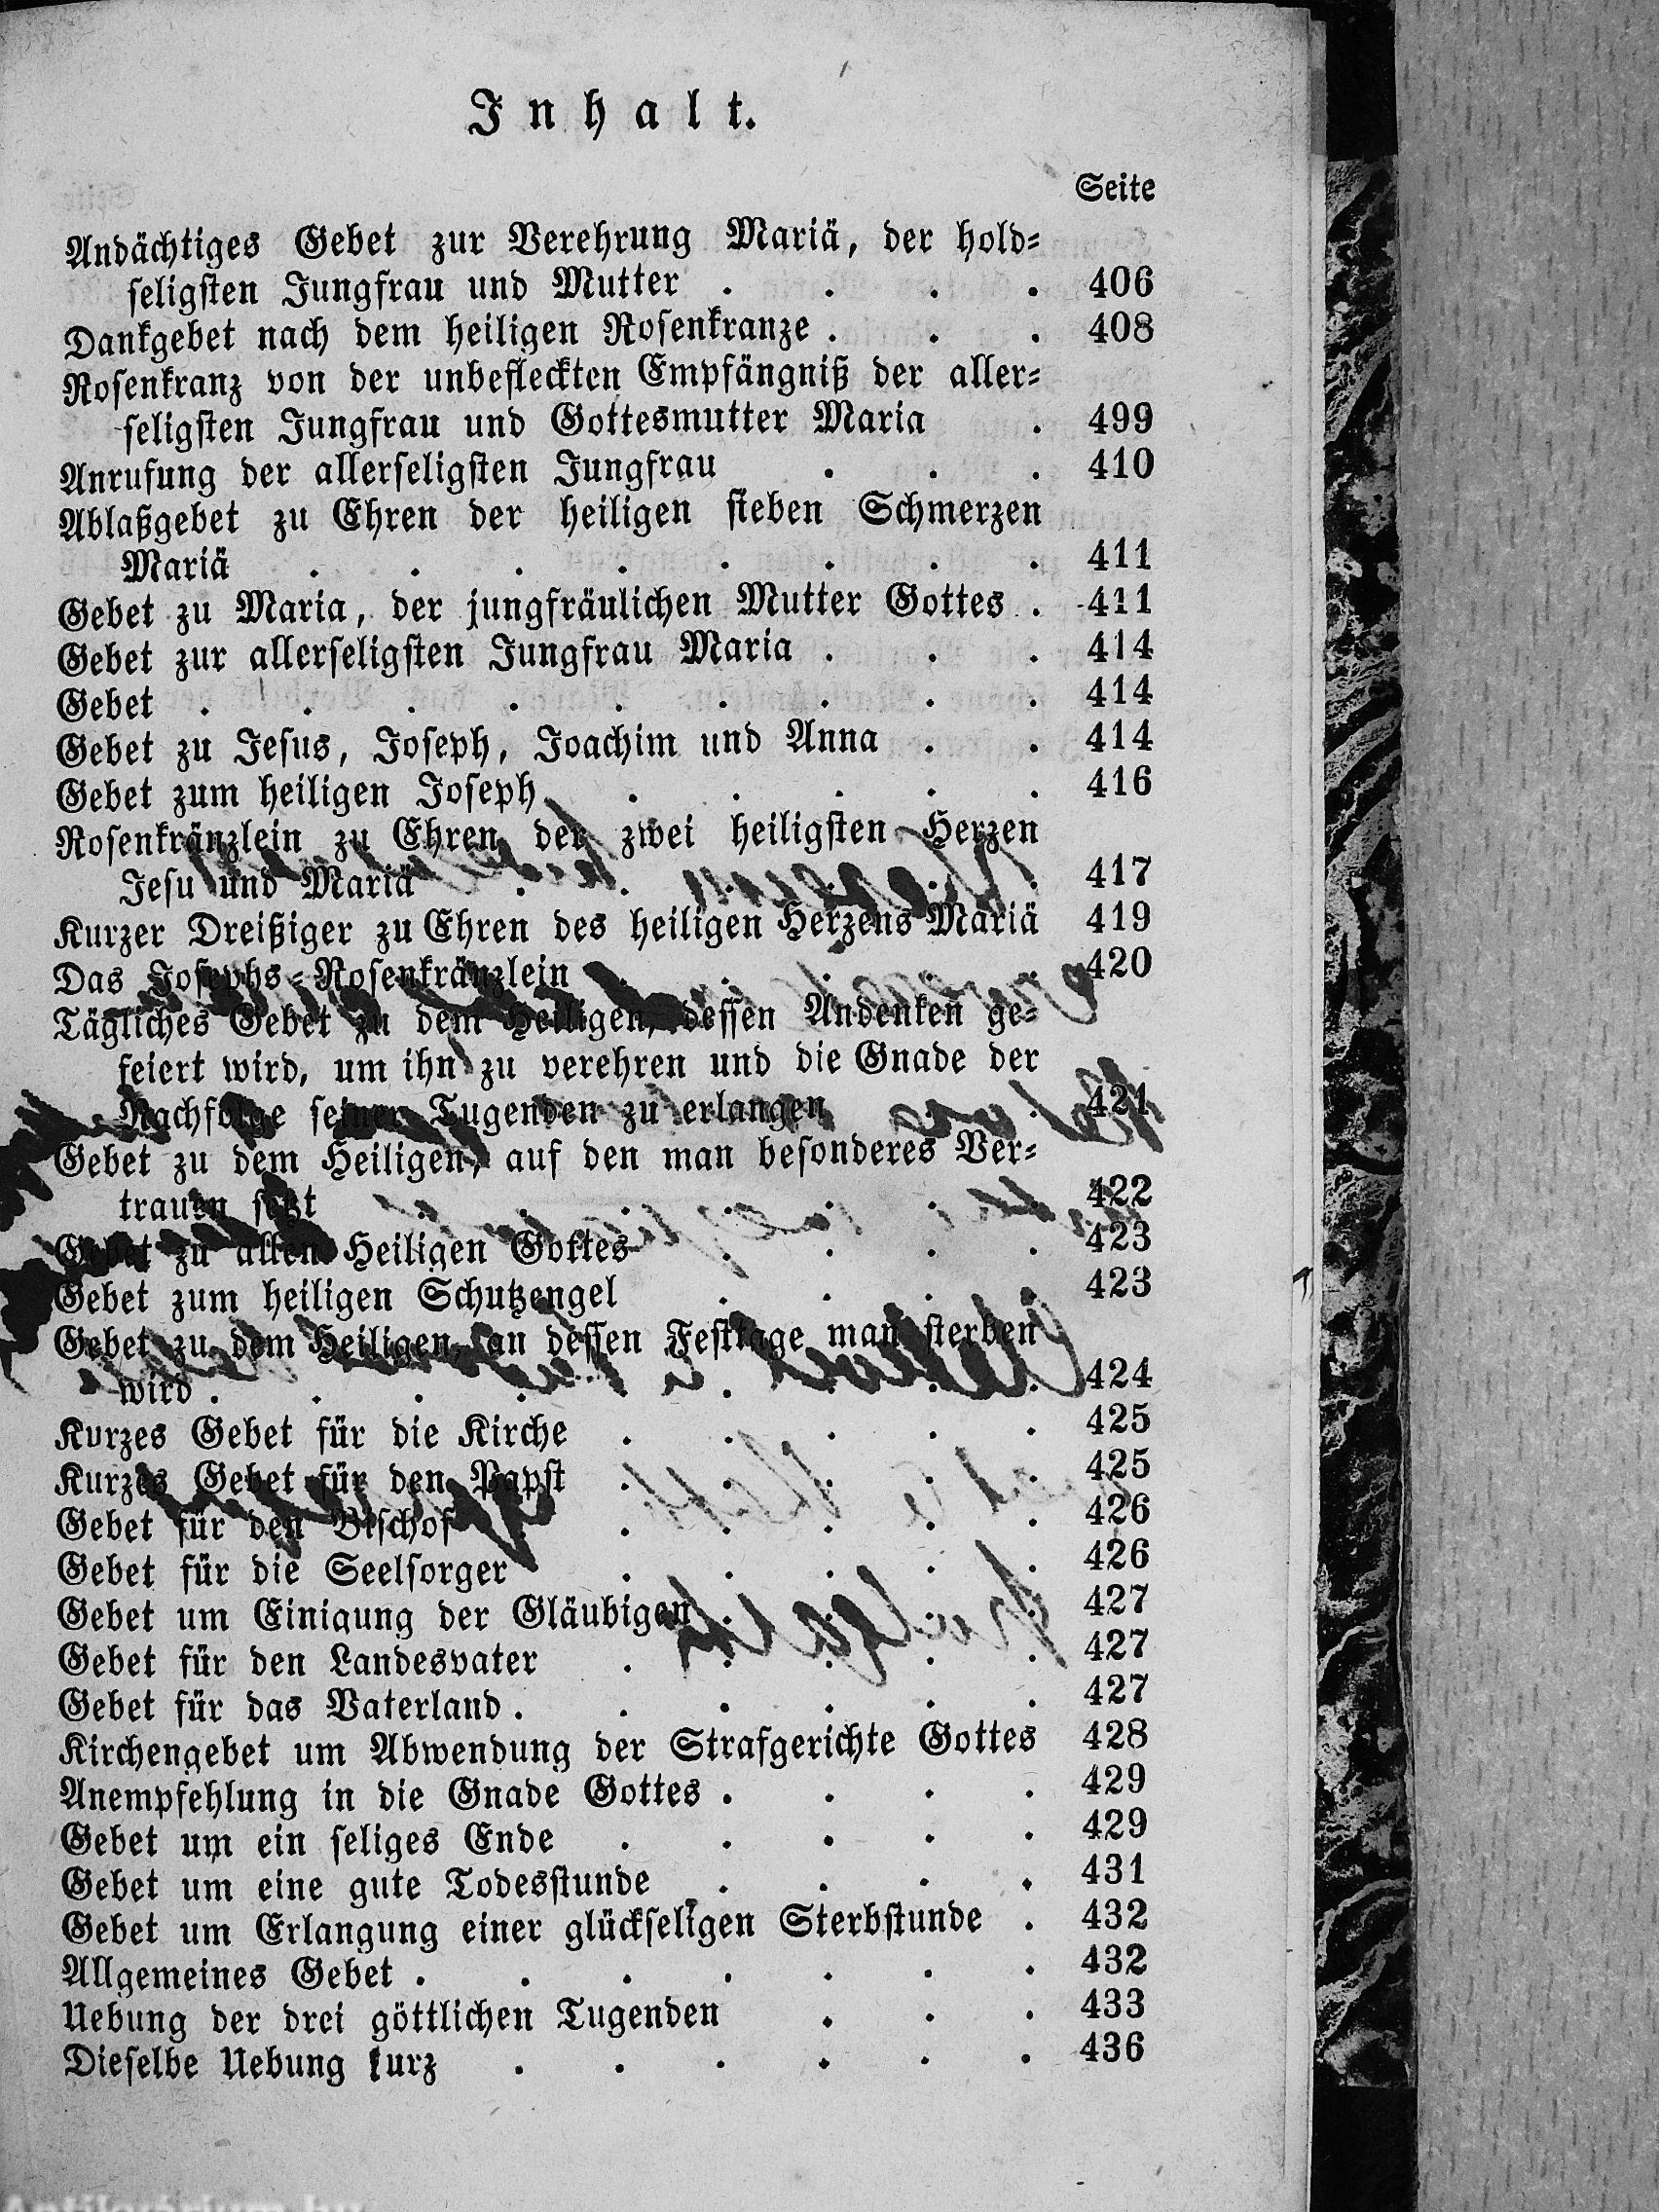 Inhalt.
Seite
Andächtiges Gebet zur Verehrung Mariä, der hold=
seligsten Jungfrau und Mutter . . . . 406
Dankgebet nach dem heiligen Rosenkranze . . . 408
Rosenkranz von der unbefleckten Empfängniß der aller=
seligsten Jungfrau und Gottesmutter Maria . 499
Anrufung der allerseligsten Jungfrau . . . 410
Ablaßgebet zu Ehren der heiligen sieben Schmerzen
Mariä . . . . . . . . 411
Gebet zu Maria, der jungfräulichen Mutter Gottes . 411
Gebet zur allerseligsten Jungfrau Maria . . . 414
Gebet . . . . . . . . . 414
Gebet zu Jesus, Joseph, Joachim und Anna . . 414
Gebet zum heiligen Joseph . . . . . 416
Rosenkränzlein zu Ehren der zwei heiligsten Herzen
Jesu und Mariä . . . . . . 417
Kurzer Dreißiger zu Ehren des heiligen Herzens Mariä 419
Das Josephs=Rosenkränzlein . . . . . 420
Tägliches Gebet zu dem Heiligen, dessen Andenken ge=
feiert wird, um ihn zu verehren und die Gnade der
Nachfolge seiner Tugenden zu erlangen . . 421
Gebet zu dem Heiligen, auf den man besonderes Ver=
trauen setzt . . . . . . . 422
Gebet zu allen Heiligen Gottes . . . . 423
Gebet zum heiligen Schutzengel . . . . 423
Gebet zu dem Heiligen, an dessen Festtage man sterben
wird . . . . . . . . . 424
Kurzes Gebet für die Kirche . . . . . 425
Kurzes Gebet für den Papst . . . . . 425
Gebet für den Bischof . . . . . 426
Gebet für die Seelsorger . . . . . 426
Gebet um Einigung der Gläubigen . . . . 427
Gebet für den Landesvater . . . . . 427
Gebet für das Vaterland . . . . . . 427
Kirchengebet um Abwendung der Strafgerichte Gottes 428
Anempfehlung in die Gnade Gottes . . . . 429
Gebet um ein seliges Ende . . . . . 429
Gebet um eine gute Todesstunde . . . . 431
Gebet um Erlangung einer glückseligen Sterbstunde . 432
Allgemeines Gebet . . . . . . . 432
Uebung der drei göttlichen Tugenden . . . 433
Dieselbe Uebung kurz . . . . . . 436